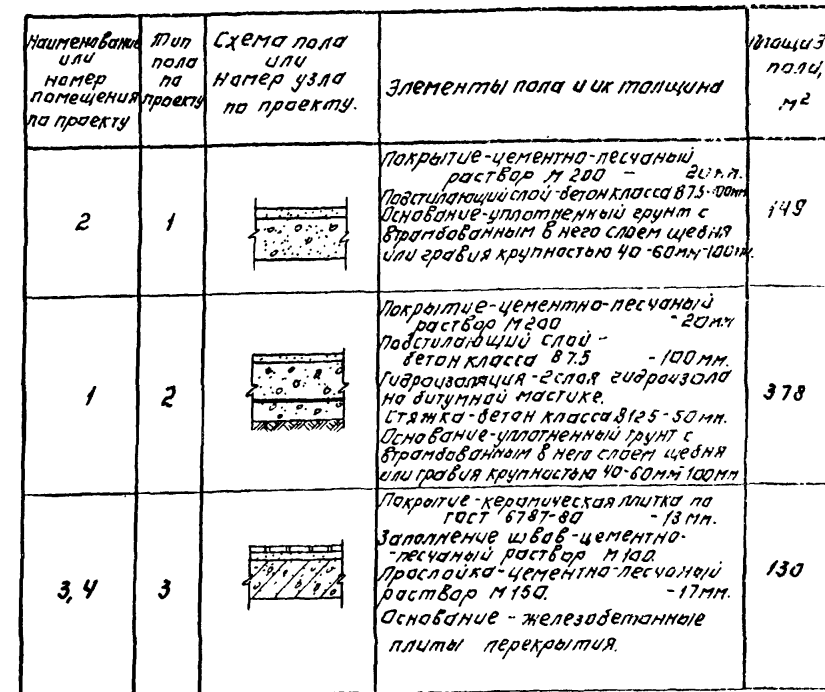 Наименование
или
номер
помещения
по проекту
Тип
пола
по
проекту
Схема пола
или
Номер узла
по проекту.
Элементы пола и их толщина
пола,
м²
2
1
Покрытие-цементно-песчаный
раствор М 200 - 20мм.
Подстилающий слой-бетон класса В7.5-100мм
Основание-уплотненный грунт с
втрамбованным в него слоем щебня
или гравия крупностью 40-60мм-100мм.
149
1
2
Покрытие-цементно-песчаный
раствор М200 -20мм
Подстилающий слой-
бетон класса В 7.5 -100мм.
Гидроизоляция-2слоя гидроизола
на битумной мастике.
Стяжка-бетон класса В12.5-50мм.
Основание-уплотненный грунт с
втрамбованным в него слоем щебня
или гравия крупностью 40-60мм-100мм
378
3,4
3
Покрытие-керамическая плитка по
ГОСТ 6787-80 -13мм.
Заполнение швов-цементно-
-песчаный раствор М100.
Прослойка-цементно-песчаный
раствор М150. -17мм.
Основание-железобетонные
плиты перекрытия.
130